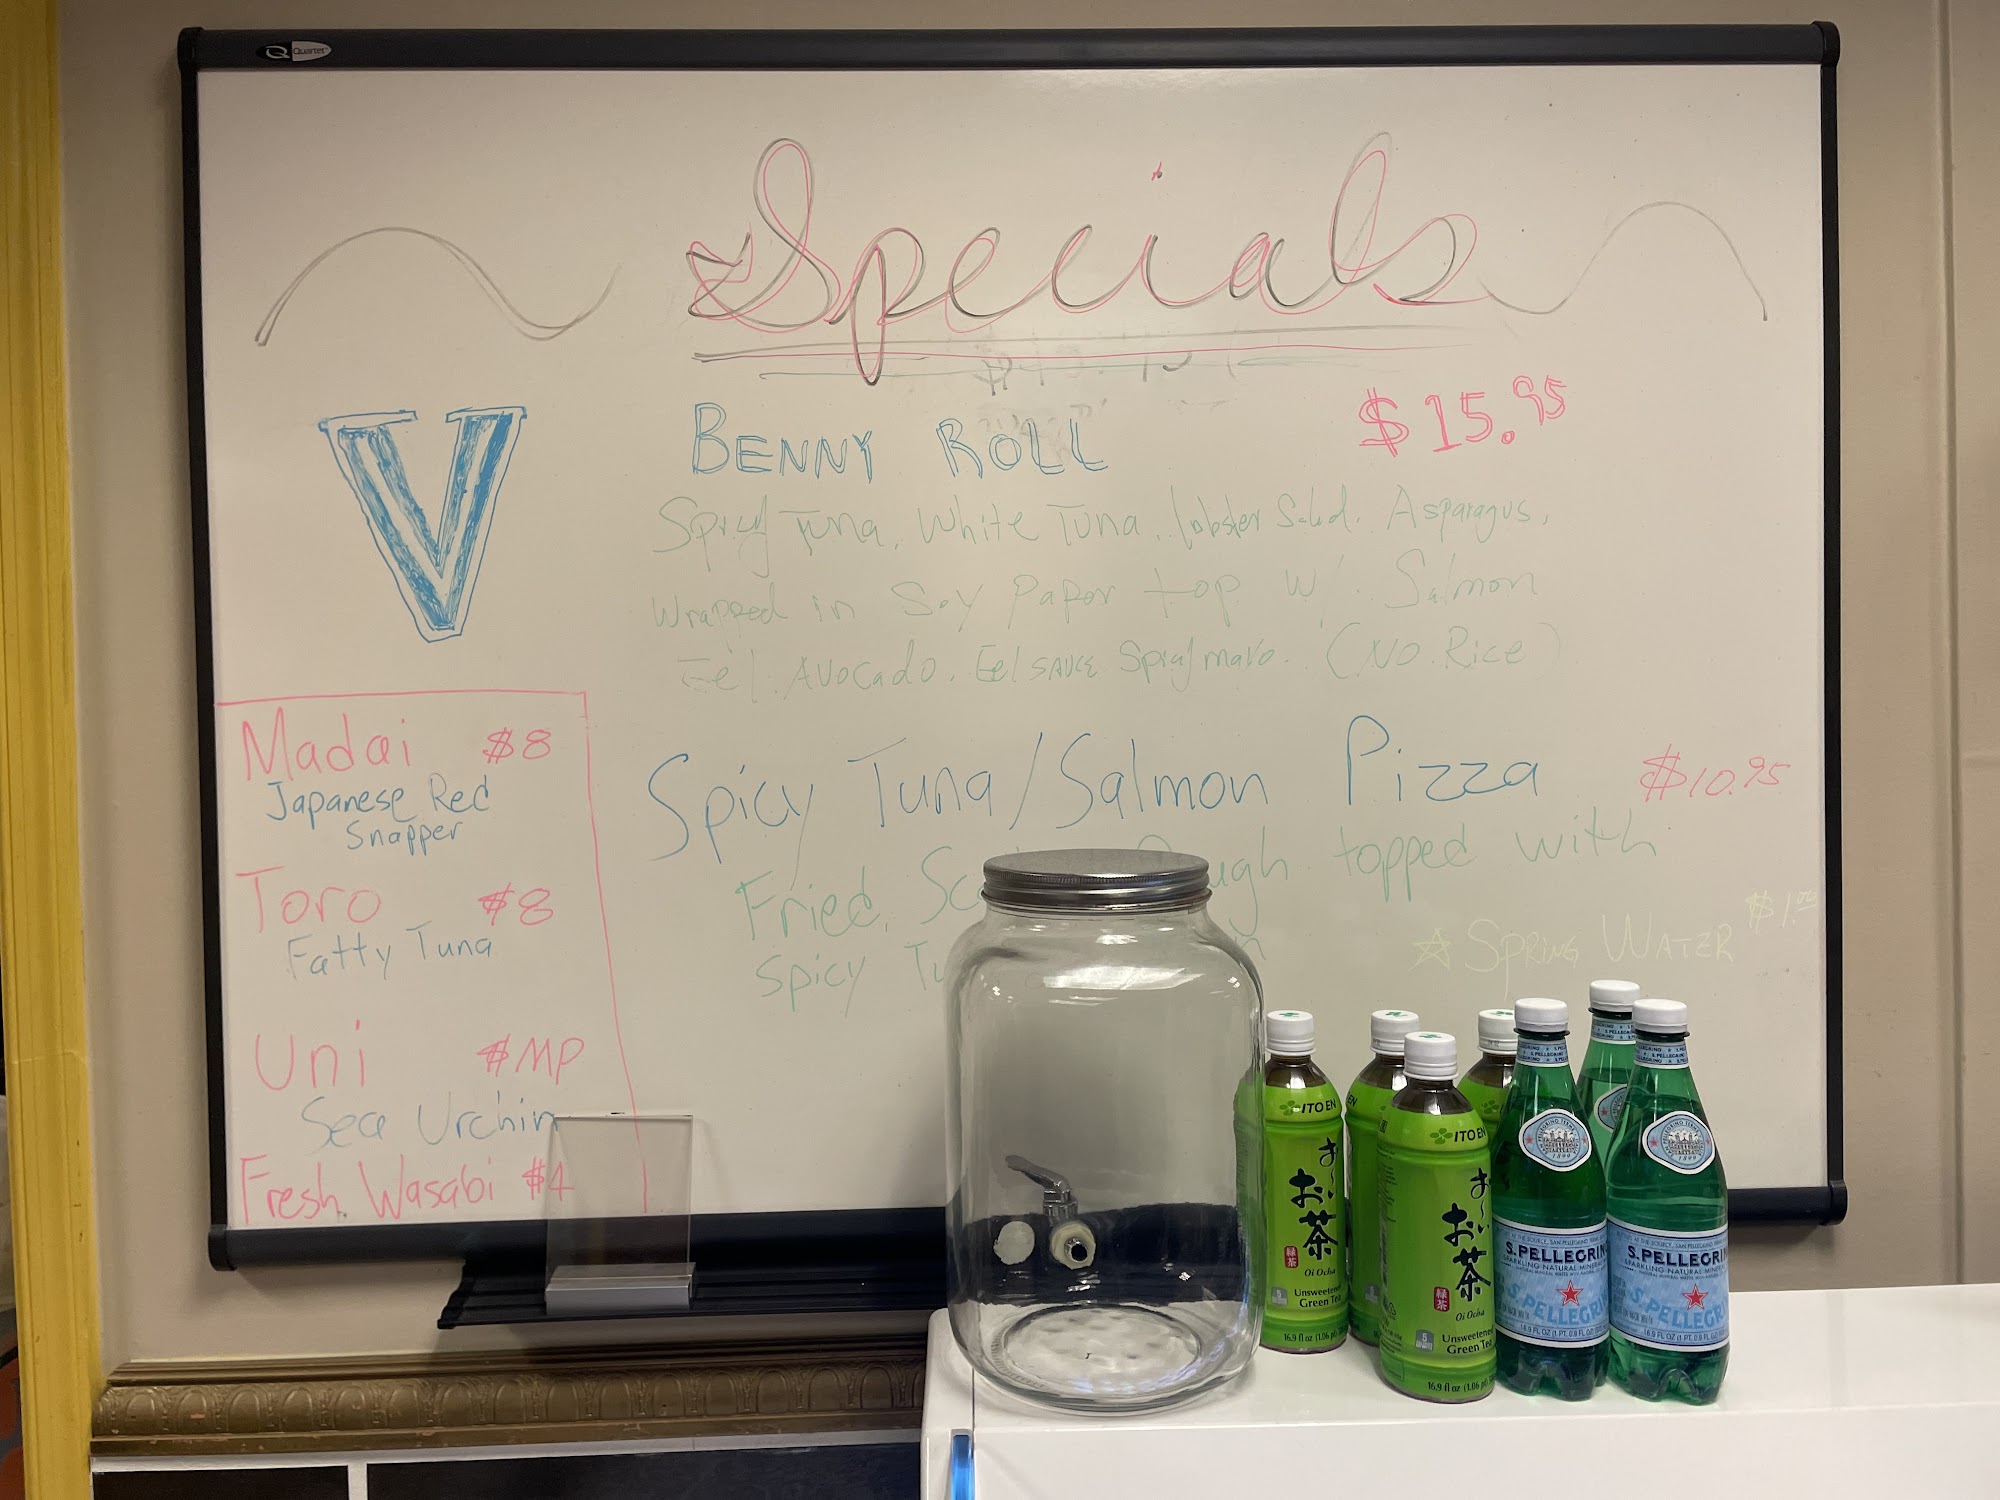 Quartet
Specials
V
BENNY ROLL $15.95
Spicy Tuna, White Tuna, lobster Salad, Asparagus,
Wrapped in Soy Paper top w/ Salmon
Eel, Avocado, Eel sauce Spicy mayo. (No Rice)
Madai $8
Japanese Red
Snapper
Toro $8
Fatty Tuna
Uni $MP
Sea Urchin
Fresh Wasabi $4
Spicy Tuna/Salmon Pizza $10.95
Fried topped with
Spicy
☆ SPRING WATER $1.00
ITO EN
お〜いお茶
緑茶
Oi Ocha
Unsweetened
Green Tea
16.9 fl oz (1.06 pt)
ITO EN
お〜いお茶
緑茶
Oi Ocha
Unsweetened
Green Tea
16.9 fl oz (1.06 pt)
S.PELLEGRINO
1899
S.PELLEGRINO
SPARKLING NATURAL MINERAL
S.PELLEGRINO
S.PELLEGRINO
1899
S.PELLEGRINO
SPARKLING NATURAL MINERAL
S.PELLEGRINO